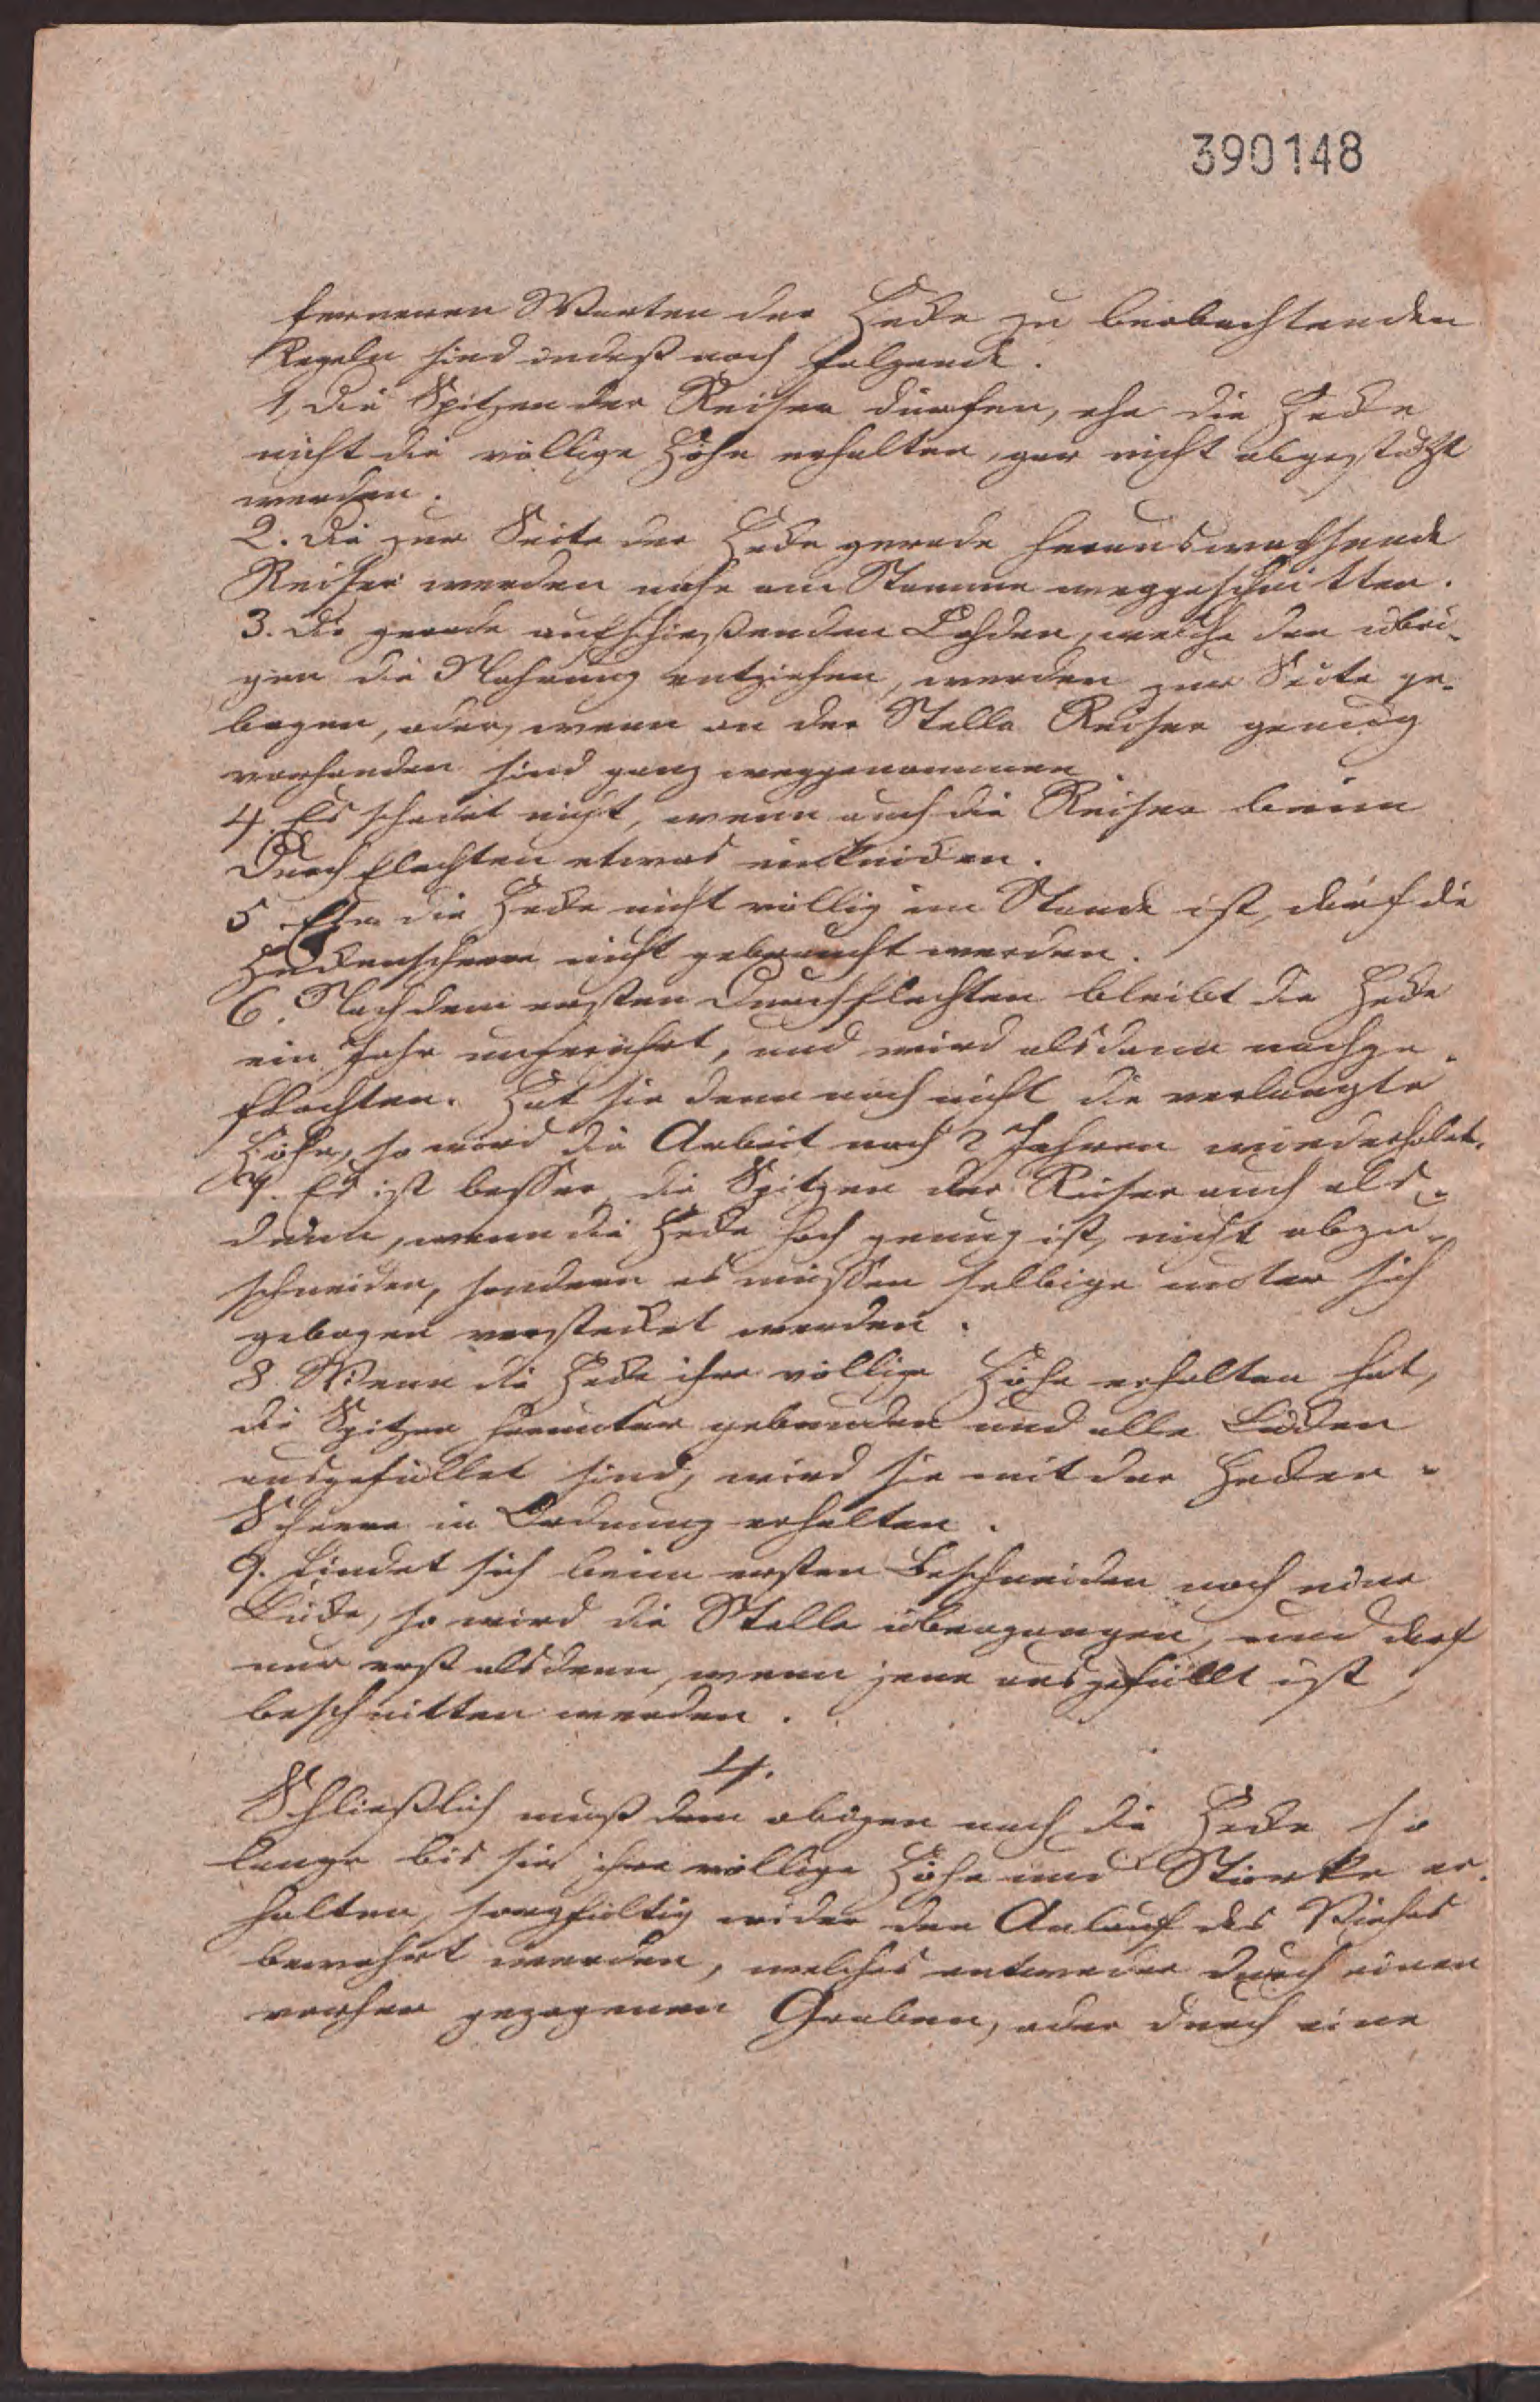 390148
ferneren Warten der Hecke zu beobachtenden
Regeln sind indeß noch folgende.
1, Die Spitzen der Reiser dürfen, ehe die Hecke
nicht die völlige Höhe erhalten, gar nicht abgestutzt
werden.
2. Die zur Seite der Hecke gerade herauswachsende
Reiser werden nahe am Stamme weggeschnitten.
3. Die gerade aufschießenden Lohden, welche den übri-
gen die Nahrung entziehen, werden zur Seite ge-
bogen, oder, wenn an der Stelle Reiser genug
vorhanden sind ganz weggenommen.
4. Es schadet nicht, wenn auch die Reiser beim
Durchflechten etwas einknicken.
5 Ehe die Hecke nicht völlig im Stande ist, darf die
Heckenscheere nicht gebraucht werden.
6. Nach dem ersten Durchflechten bleibt die Hecke
ein Jahr ungerührt, und wird alsdann nachge-
flochten. Hat sie denn noch nicht die verlangte
Höhe, so wird die Arbeit nach 2 Jahren wiederholet.
7. Es ist besser, die Spitzen der Reiser auch als-
dann, wenn die Hecke hoch genug ist, nicht abzu-
schneiden, sondern es müssen selbige unter sich
gebogen verstecket werden.
8. Wenn die Hecke ihre völlige Höhe erhalten hat,
die Spitzen herunter gebunden und alle Lücken
ausgefüllet sind, wird sie mit der Hecken-
Scheere in Ordnung erhalten.
9. Findet sich beim ersten Beschneiden noch eine
Lücke, so wird die Stelle übergangen, und darf
nur erst alsdenn, wenn jene ausgefüllt ist,
beschnitten werden.
4.
Schließlich muß dem obigen nach die Hecke so
lange bis sie ihre völlige Höhe und Stärke er-
halten, sorgfältig wider den Anlauf des Viehes
bewahrt werden, welches entweder durch einen
vorher gezogenen Graben, oder durch eine